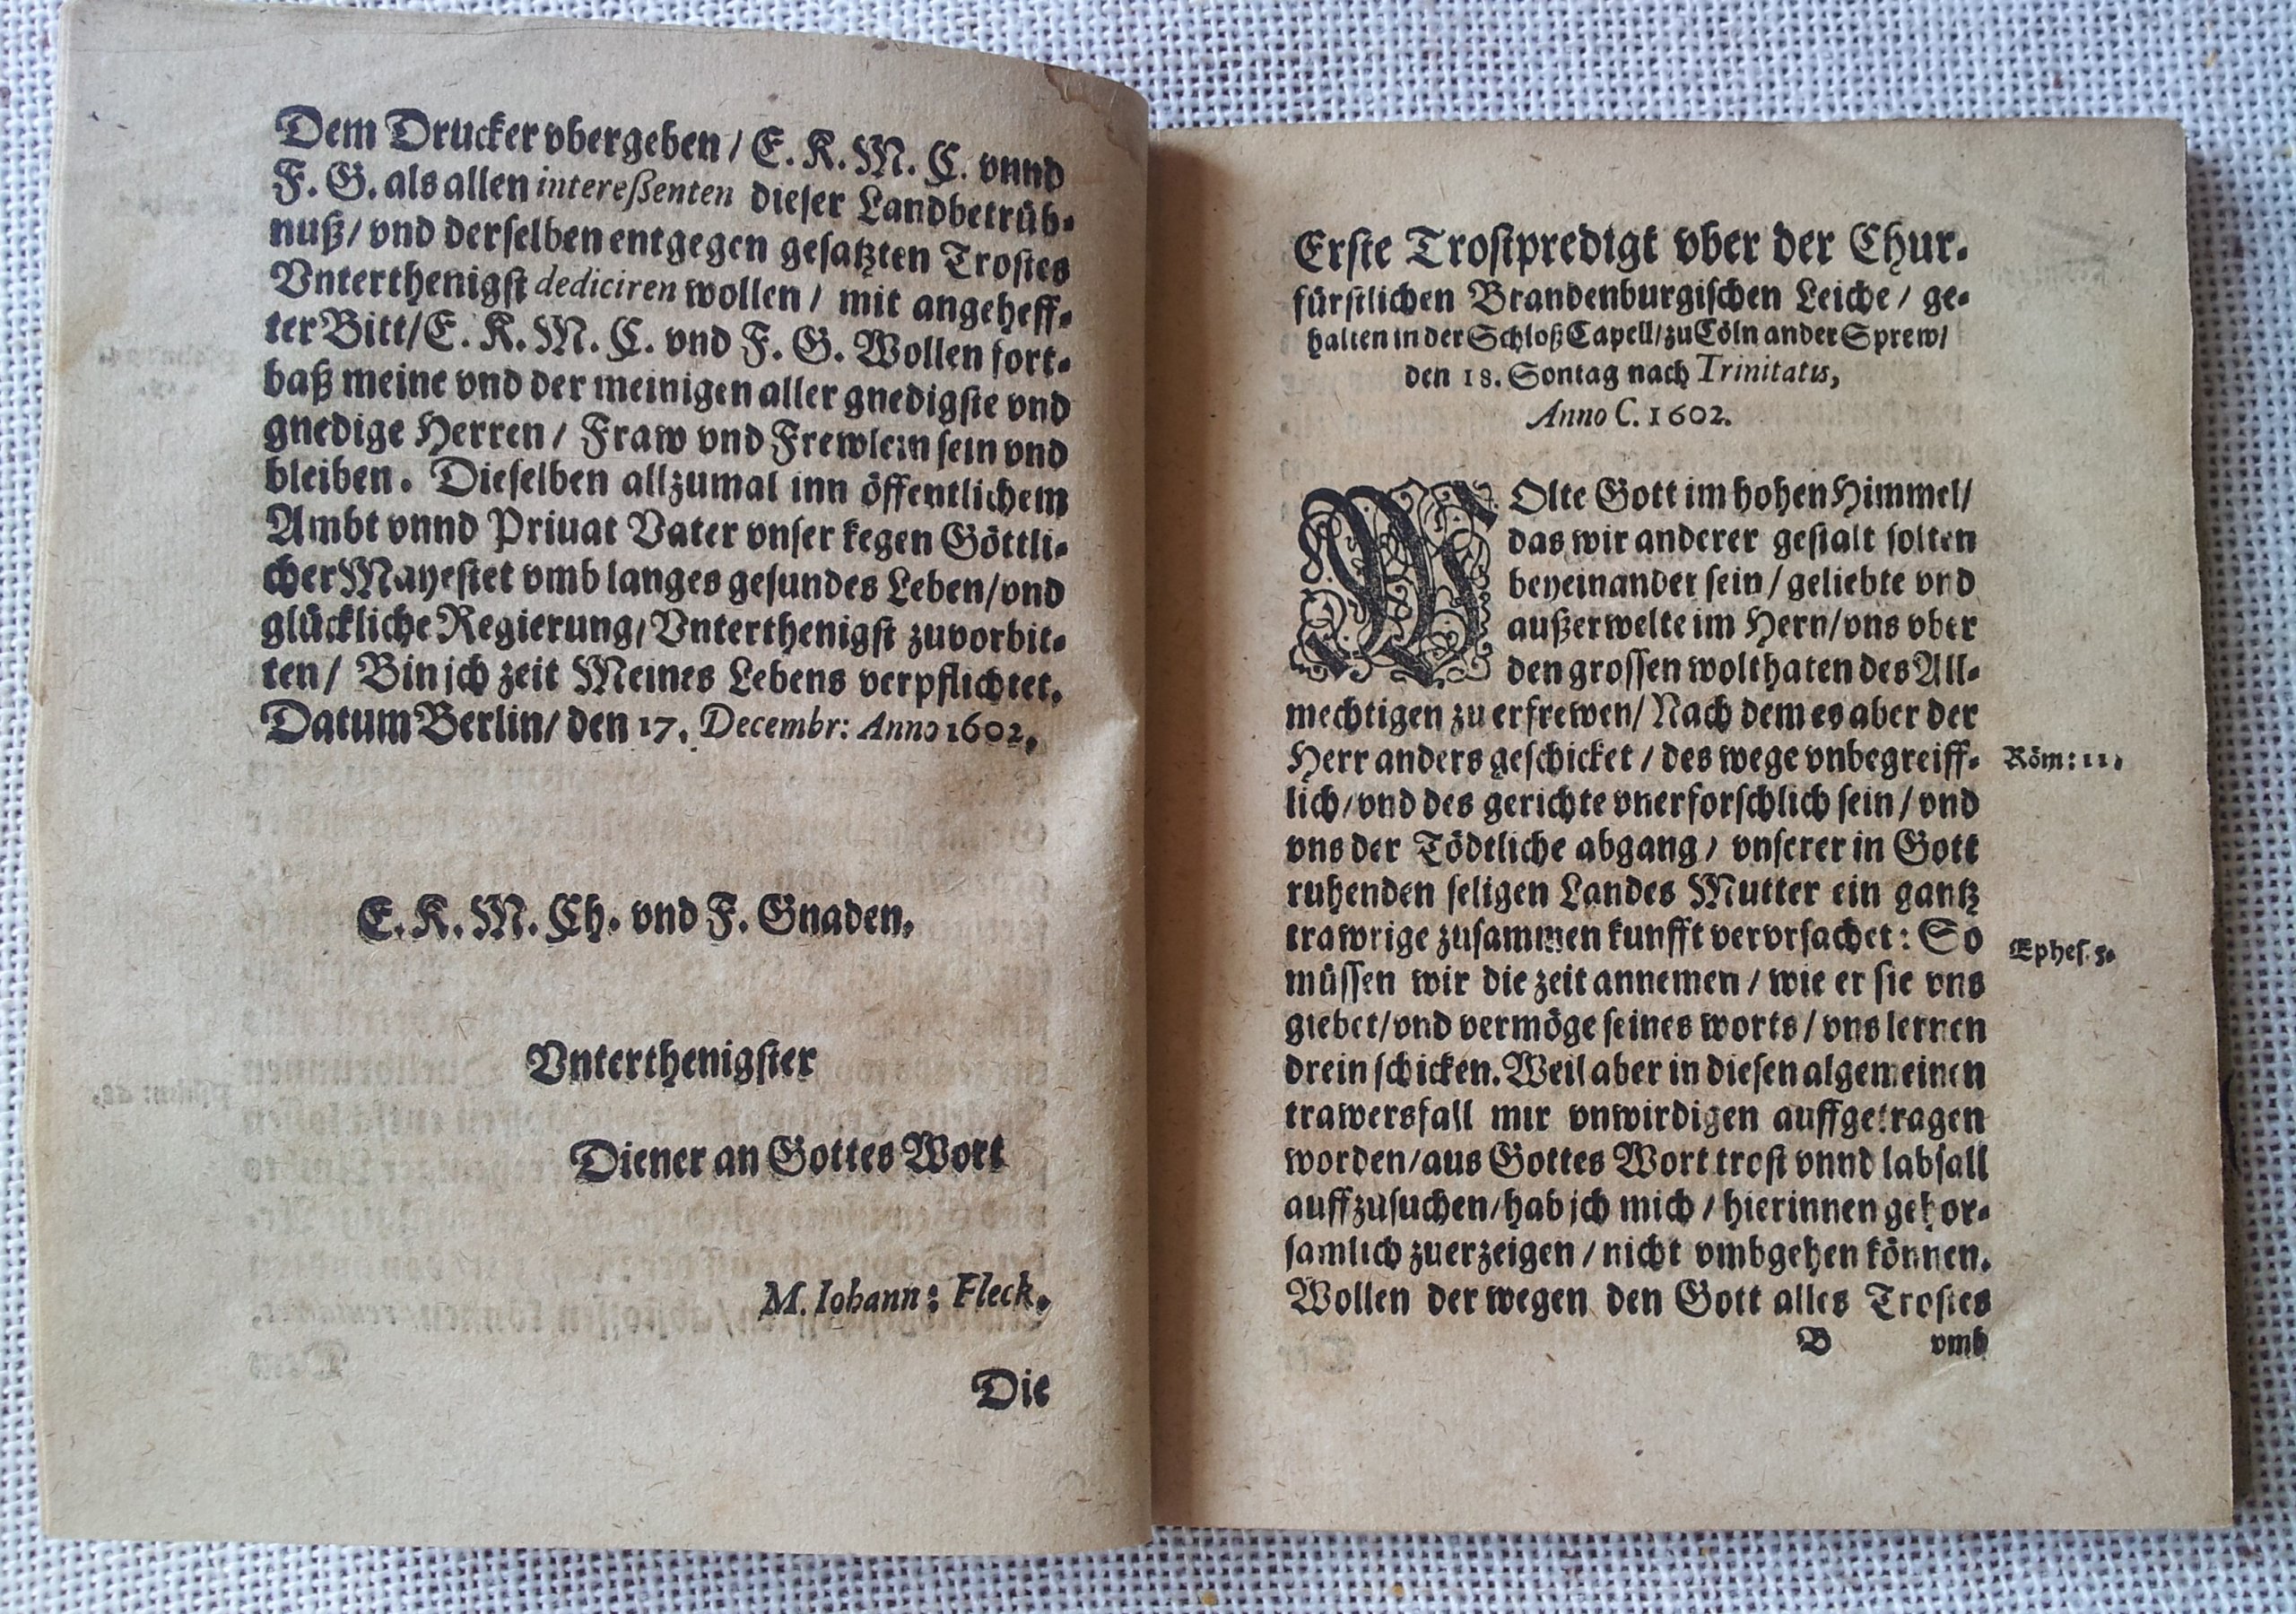 Dem Drucker vbergeben / E. K. M. C. vnnd
F. G. als allen intereßenten dieser Landbetrüb-
nuß / vnd derselben entgegen gesatzten Trostes
Vnterthenigst dediciren wollen / mit angeheff-
ter Bitt / E. K. M. C. vnd F. G. Wollen fort-
baß meine vnd der meinigen aller gnedigste vnd
gnedige Herren / Fraw vnd Frewlein sein vnd
bleiben. Dieselben allzumal inn öffentlichem
Ambt vnnd Priuat Vater vnser kegen Göttli-
cher Mayestet vmb langes gesundes Leben / vnd
glückliche Regierung / Vnterthenigst zuvorbit-
ten / Bin jch zeit Meines Lebens verpflichtet.
Datum Berlin / den 17. Decembr: Anno 1602.
E. K. M. Ch. vnd F. Gnaden.
Vnterthenigster
Diener an Gottes Wort
M. Iohann: Fleck.
Die
Erste Trostpredigt vber der Chur-
fürstlichen Brandenburgischen Leiche / ge-
halten in der Schloß Capell / zu Cöln an der Sprew /
den 18. Sontag nach Trinitatis,
Anno C. 1602.
WOlte Gott im hohen Himmel /
das wir anderer gestalt solten
beyeinander sein / geliebte vnd
außerwelte im Hern / vns vber
den grossen wolthaten des All-
mechtigen zu erfrewen / Nach dem es aber der
Herr anders geschicket / des wege vnbegreiff-
Röm: 11.
lich / vnd des gerichte vnerforschlich sein / vnd
vns der Tödtliche abgang / vnserer in Gott
ruhenden seligen Landes Mutter ein gantz
trawrige zusammen kunfft vervrsachet: So
Ephes. 5.
müssen wir die zeit annemen / wie er sie vns
giebet / vnd vermöge seines worts / vns lernen
drein schicken. Weil aber in diesen algemeinen
trawersfall mir vnwirdigen auffgetragen
worden / aus Gottes Wort trost vnnd labsall
auffzusuchen / hab jch mich / hierinnen gehor-
samlich zuerzeigen / nicht vmbgehen können.
Wollen der wegen den Gott alles Trostes
B vmb